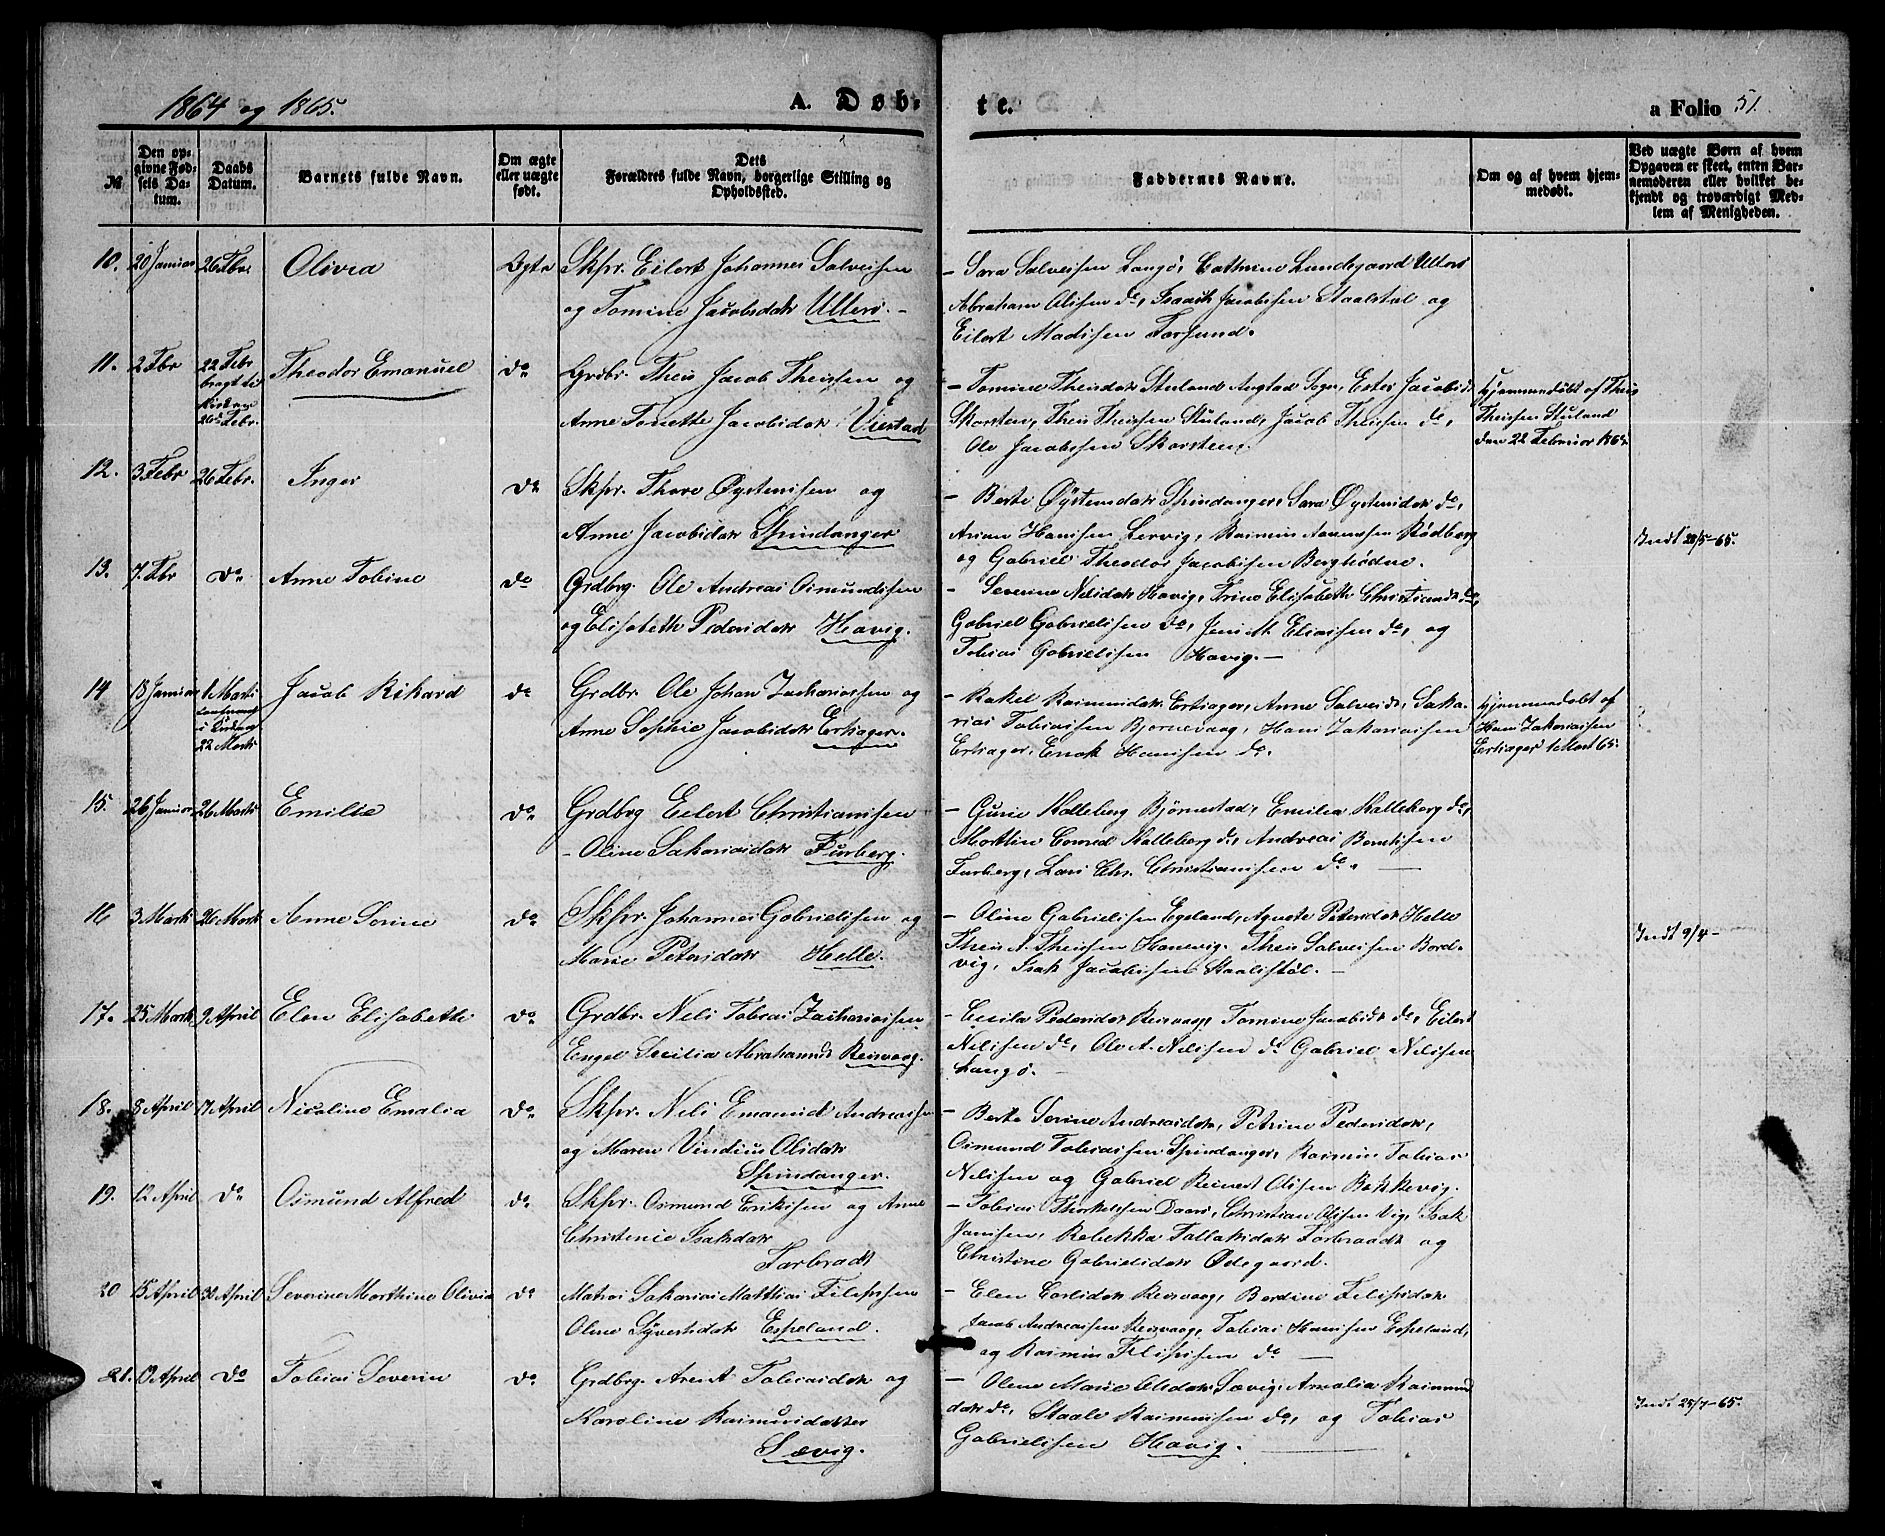 1864 og 1865.
A. Døb-
te.
a Folio 51.
№
Den op-
givne Fød-
sels Da-
tum.
Daabs
Datum.
Barnets fulde Navn.
Om ægte
eller uægte
født.
Dets
Forældres fulde Navn, borgerlige Stilling og
Opholdssted.
Faddernes Navne.
Om og af hvem hjem-
medøbt.
Ved uægte Børn af hvem
Opgaven er skeet, enten Bar-
nemoderen eller hvilket be-
kjendt og troværdigt Med-
lem af Menigheden.
10. 20 Januar 26 Fbr. Olivia Ægte Skpr. Eilert Johannes Salvesen
og Tomine Jacobsdatr Ullerø.
– Sara Salvesen Langø, Cathrine Lundegaard Ullerø
Abraham Olsen do, Isaack Jacobsen Staalstøl og
Eilert Madsen Farsund.
11. 2 Fbr 22 Febr
bragt til
Kirken
26de Febr.
Theodor Emanuel do Grdbr. Theis Jacob Theissen og
Anne Tonette Jacobsdatr Viestad
– Tomine Theisdatr Stuland Augland Sogn, Ester Jacobsd.
Skarsten, Theis Theissen Stuland, Jacob Theissen do,
Ole Jacobsen Skarsten.
Hjemmedøbt af Theis
Theissen Stuland
den 22 Februar 1865.
12. 3 Febr 26 Febr. Inger do Skpr. Thore Øystensen og
Anne Jacobsdatr Spindanger
– Berte Øystensdatr Spindanger, Sara Øystensdatr do,
Arian Hansen Lervig, Rasmus Aanensen Rødberg
og Gabriel Theodor Jacobsen Berghødne.
Indt 28/5–65.
13. 7. Fbr do Anne Tobine do Grdbrg Ole Andreas Osmundsen
og Elisabeth Pedersdatr Havig.
– Severine Nelsdatr Havig, Trine Elisabeth Christiansd. do,
Gabriel Gabrielsen do, Jens M. Eliassen do, og
Tobias Gabrielsen Havig. –
14 13 Januar 1 Marts
i Kirken
22 Marts
Jacob Rikard do Grdbr Ole Johan Zachariassen og
Anne Sophie Jacobsdatr Ertsager.
– Rakel Rasmusdatr Ertsager, Anne Salvesd., Saka-
rias Tobiassen Bjørnevaag, Hans Zakariassen
Ertsager, Enok Hansen do.
Hjemmedøbt af
Hans Zakariassen
Ertsager 1 Mart 65.
15. 26 Januar 26 Marts Emilie do Grdbrg Eilert Christiansen
– Oline Sakariasdatr Furberg.
– Gurie Kalleberg Bjørnestad, Emilia Kalleberg do,
Morthin Conrad Kalleberg do, Andreas Berntsen
Furberg, Lars Chr. Christiansen do. –
16 3 Marts 26 Mart Anne Sorine do Skpr. Johannes Gabrielsen og
Marie Petersdatr Helle.
– Oline Gabrielsen Egeland, Agnete Petersdatr Helle
Theis A. Theissen Hanevig, Theis Salvesen Bord-
vig, Isak Jacobsen Staalstøl. –
Indt 9/4 –
17. 25 Mart 9 April Elen Elisabette do Grdbr. Nels Tobias Zachariassen
Engel Secilia Abrahamsd Reisvaag.
– Cecilia Pedersdatr Reisvaag, Tomine Jacobsdr do, Eilert
Nilssen do, Ole A. Nilssen do Gabriel Nilssen
Langø. –
18. 8 April 17 April Nicoline Emalia do Skpr. Nels Emanuel Andreassen
og Maren Olsdatr
Spindanger.
– Berte Serine Andreasdatr, Petrine Pedersdatr,
Osmund Tobiassen Spindanger, Rasmus Tobias
Nilssen og Gabriel Reinert Olsen Bakkevig.
19. 12 April do Osmund Alfred do Skpr. Osmund Eriksen og Anne
Christenie Isaksdatr
Farbradt
– Tobias Thorkelsen Daarø, Christian Olsen Vig, Isak
Jansen, Rebekka Tallaksdatr Farbraadt og
Christine Gabrielsdatr Ødegaard.
20 15 April 30 April Severine Morthine Olivia do Matros Sakarias Matthias Filipsen
Oline Syvertsdatr Espeland.
– Elen Carlsdatr Reisvaag, Berdine Filipsdatr
Jacob Andreassen Reisvaag, Tobias Hansen Espeland,
og Rasmus Filipsen do –
21. April do Tobias Severin do Grdbrg. Tobiasdatr og
Karoline Rasmusdatter
Sævig.
– Olene Marie Olsdatr Sævig, Amalia Rasmus
datr do, Staale Rasmussen do, og Tobias
Gabrielsen Havig.
Indt 25/7–65.